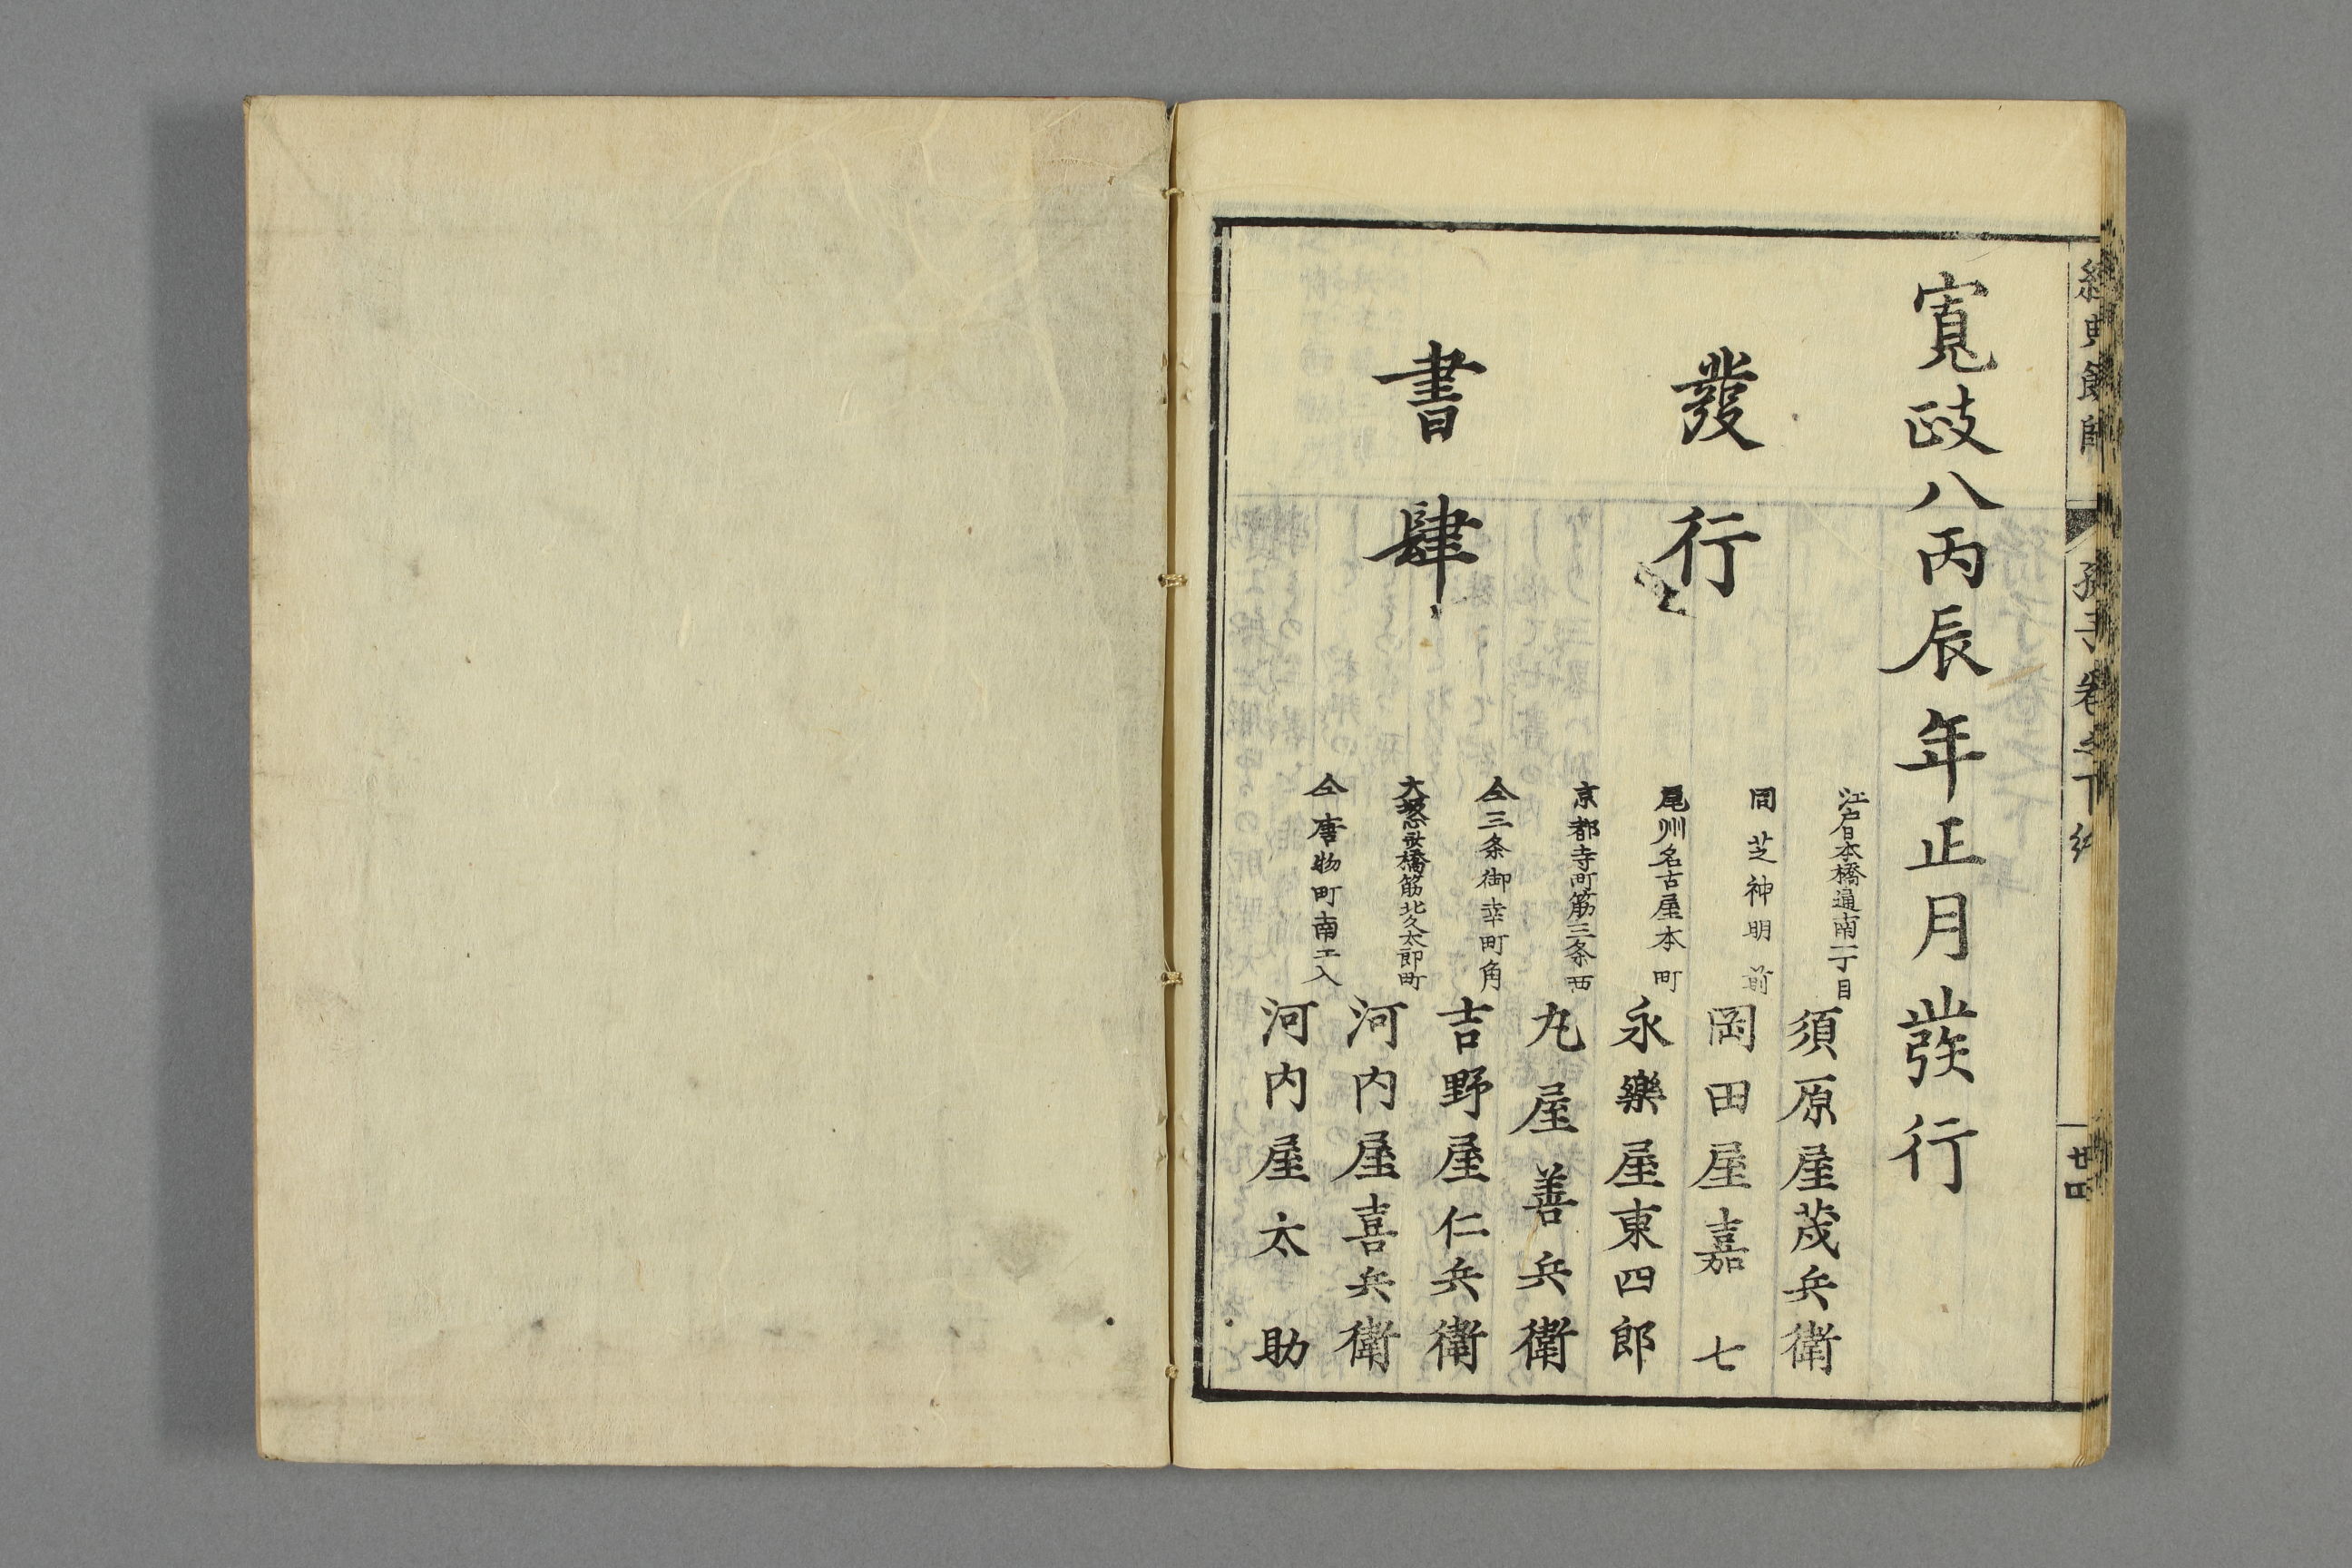 經典餘師
孫子卷之下終
廿四
寛政八丙辰年正月發行
發行
書肆
江戸日本橋通南一丁目
須原屋茂兵衛
同芝神明前
岡田屋嘉七
尾州名古屋本町
永樂屋東四郎
京都寺町筋三条西
丸屋善兵衛
仝三条御幸町角
吉野屋仁兵衛
大坂心斎橋筋北久太郎町
河内屋喜兵衛
仝唐物町南エ入
河内屋太助